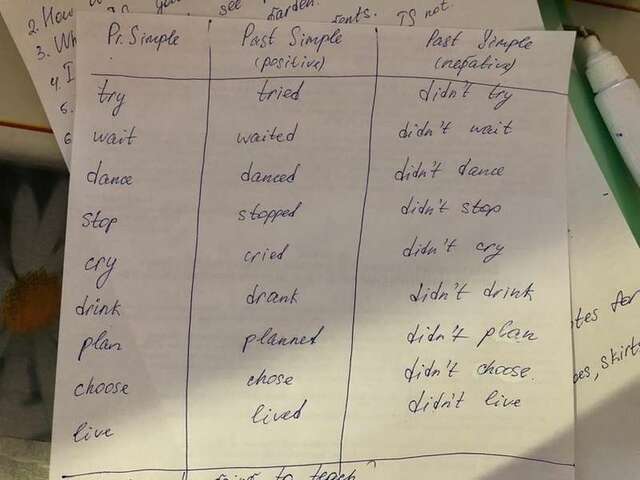 2. How see garden.
3. Wh rents. TS not.
4. I
5.
6
Pr. Simple Past Simple (positive) Past Simple (negative)
try tried didn't try
wait waited didn't wait
dance danced didn't dance
stop stopped didn't stop
cry cried didn't cry
drink drank didn't drink
plan planned didn't plan
choose chose didn't choose.
live lived didn't live
tes for
oes, skirts
point to teach